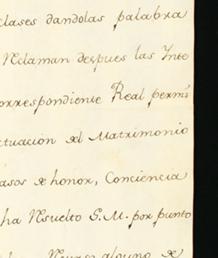 clases dandolas palabra
Reclaman despues las Inte
correspondiente Real permi
ctuacion del Matrimonio
asos de honor, Conciencia
ha Resuelto S. M. por punto
alguno de